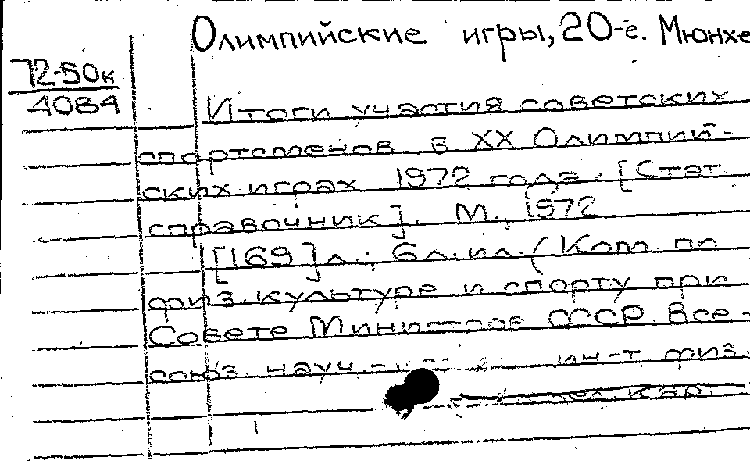 Олимпийские игры, 20-е. Мюнхе
72-50к
4084
Итоги участия советских
спортсменов в XX Олимпий-
ских играх 1972 года. [Стат.
справочник]. М., 1972
[169] л.; 6 л. ил. (Ком. по
физ. культуре и спорту при
Совете Министров СССР. Все-
союз. науч.- ин-т физ.